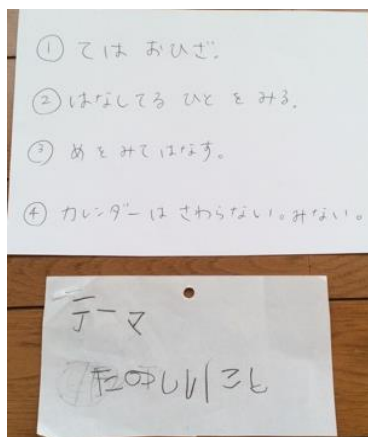 ① てはおひざ。
② はなしてるひとをみる。
③ めをみてはなす。
④ カレンダーはさわらない。みない。
テーマ
たのしいこと